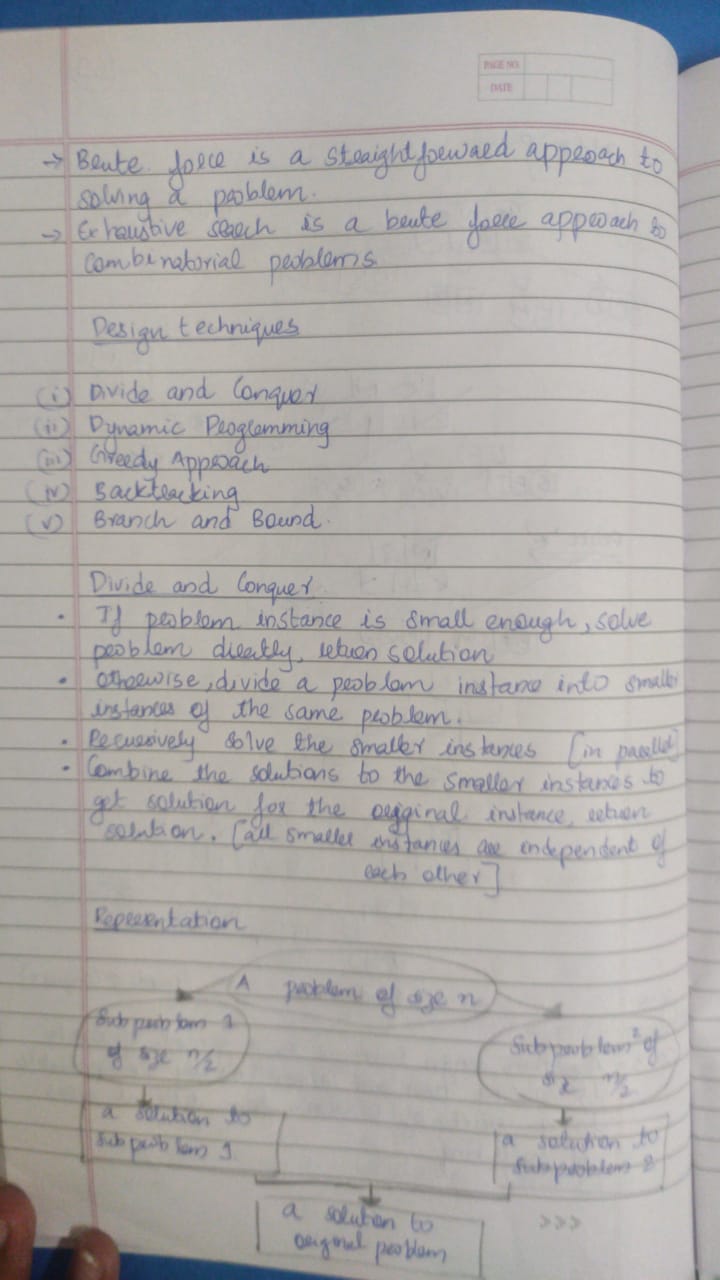 PAGE NO.
DATE
→ Brute force is a straightforward approach to
solving a problem.
→ Exhaustive search is a brute force approach to
combinatorial problems.
Design techniques
(i) Divide and Conquer
(ii) Dynamic Progremming
(iii) Greedy Approach
(iv) Backtracking
(v) Branch and Bound.
Divide and Conquer
• If problem instance is small enough, solve
problem directly, return solution
• otherwise, divide a problem instance into smaller
instances of the same problem.
• Recursively solve the smaller instances [in parallel]
• Combine the solutions to the smaller instances to
get solution for the origginal instance, return
solution. [all smaller instances are independent of
each other]
Representation
A problem of size n
Subproblem 1
of size n/2
Subproblem 2 of
size n/2
a solution to
subproblem 1
a solution to
subproblem 2
a solution to
original problem
>>>